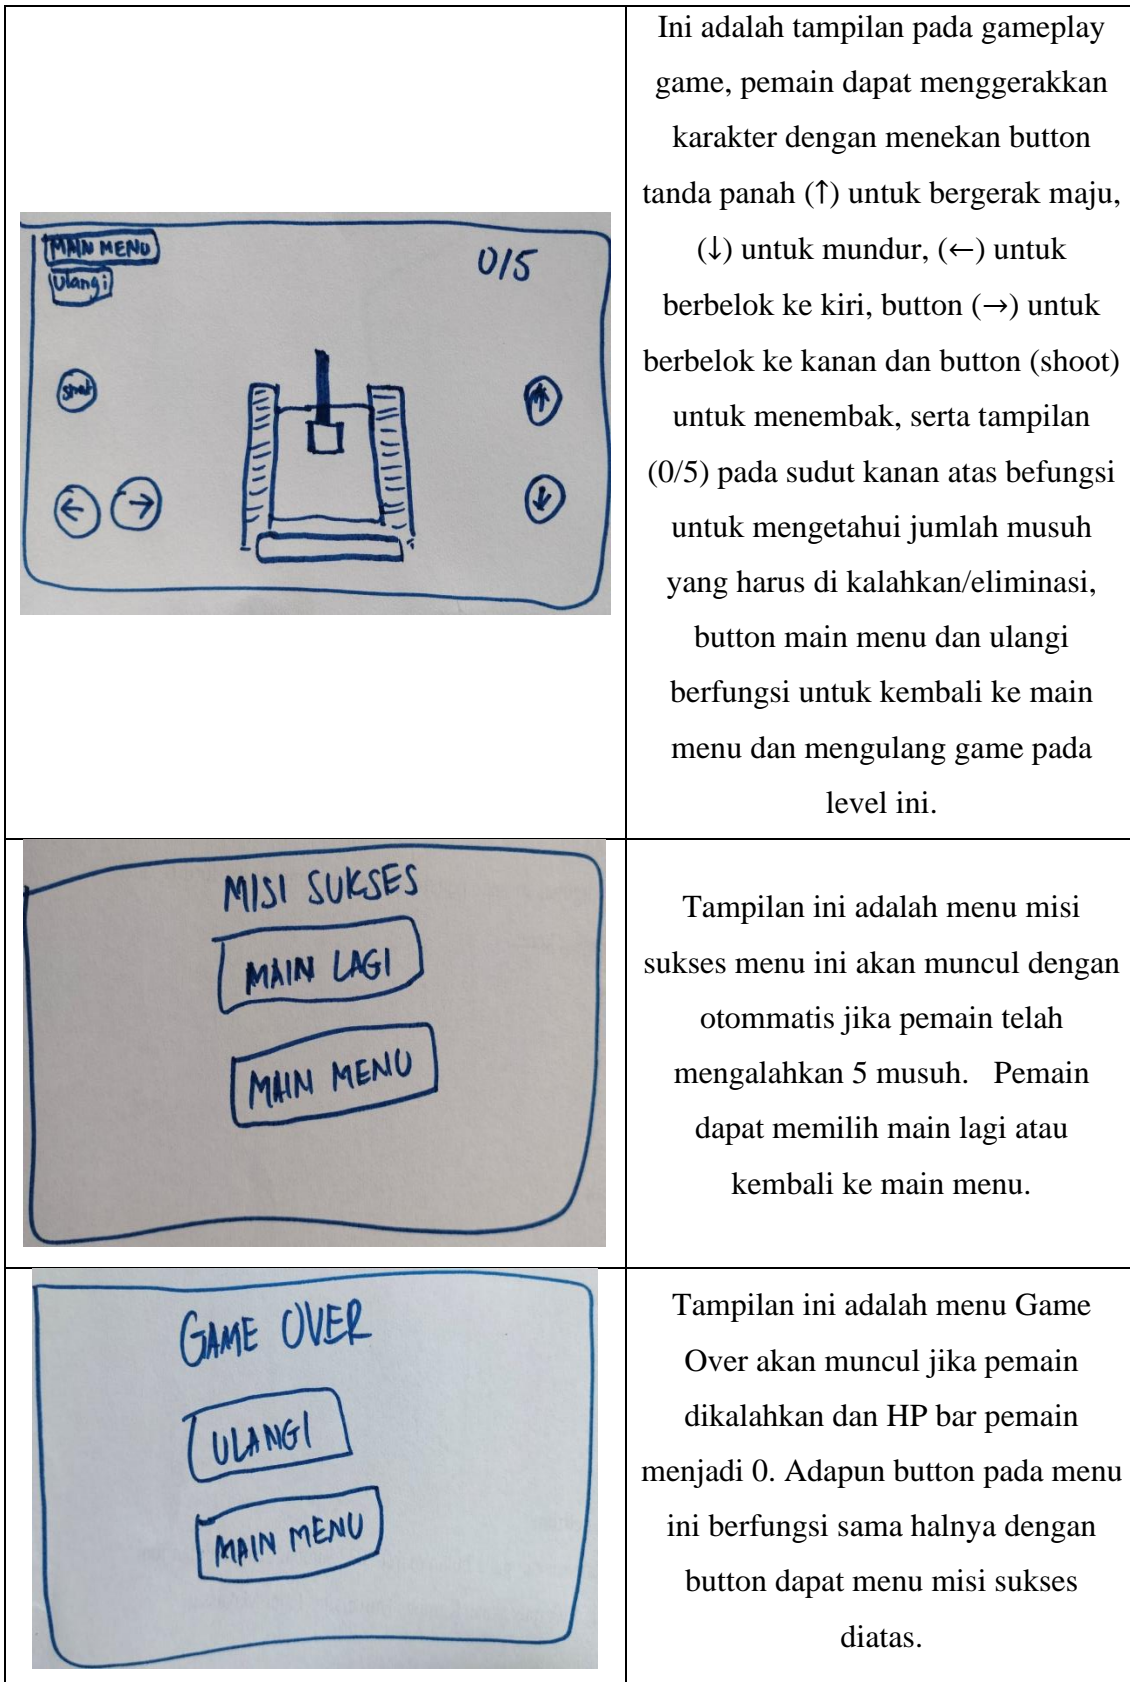 MAIN MENU
Ulangi
0/5
shoot
↑
← →
↓
Ini adalah tampilan pada gameplay
game, pemain dapat menggerakkan
karakter dengan menekan button
tanda panah (↑) untuk bergerak maju,
(↓) untuk mundur, (←) untuk
berbelok ke kiri, button (→) untuk
berbelok ke kanan dan button (shoot)
untuk menembak, serta tampilan
(0/5) pada sudut kanan atas befungsi
untuk mengetahui jumlah musuh
yang harus di kalahkan/eliminasi,
button main menu dan ulangi
berfungsi untuk kembali ke main
menu dan mengulang game pada
level ini.
MISI SUKSES
MAIN LAGI
MAIN MENU
Tampilan ini adalah menu misi
sukses menu ini akan muncul dengan
otommatis jika pemain telah
mengalahkan 5 musuh. Pemain
dapat memilih main lagi atau
kembali ke main menu.
GAME OVER
ULANGI
MAIN MENU
Tampilan ini adalah menu Game
Over akan muncul jika pemain
dikalahkan dan HP bar pemain
menjadi 0. Adapun button pada menu
ini berfungsi sama halnya dengan
button dapat menu misi sukses
diatas.